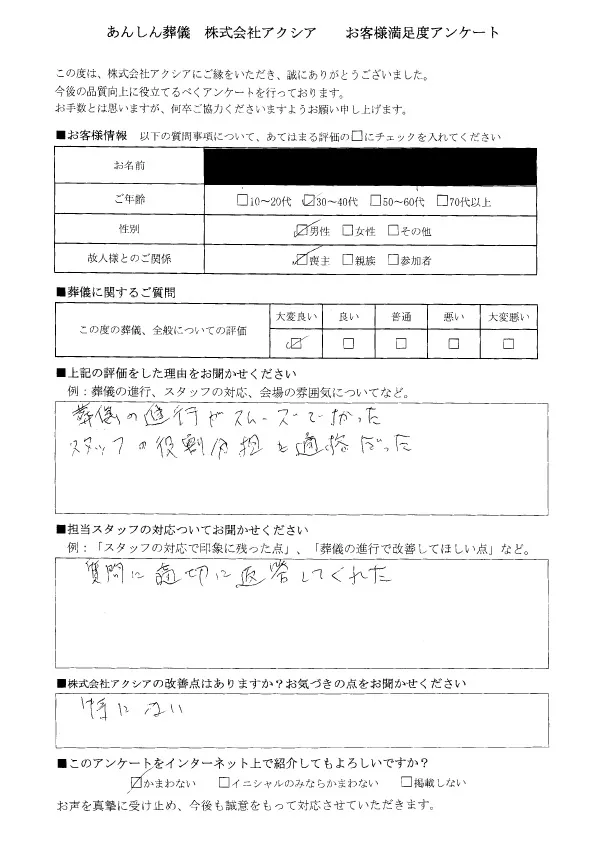 あんしん葬儀　株式会社アクシア　　お客様満足度アンケート
この度は、株式会社アクシアにご縁をいただき、誠にありがとうございました。
今後の品質向上に役立てるべくアンケートを行っております。
お手数とは思いますが、何卒ご協力くださいますようお願い申し上げます。
■お客様情報　以下の質問事項について、あてはまる評価の□にチェックを入れてください
お名前
ご年齢　□10～20代　☑30～40代　□50～60代　□70代以上
性別　☑男性　□女性　□その他
故人様とのご関係　☑喪主　□親族　□参加者
■葬儀に関するご質問
大変良い　良い　普通　悪い　大変悪い
この度の葬儀、全般についての評価　☑　□　□　□　□
■上記の評価をした理由をお聞かせください
例：葬儀の進行、スタッフの対応、会場の雰囲気についてなど。
葬儀の進行がスムーズでよかった
スタッフの役割分担も適格だった
■担当スタッフの対応ついてお聞かせください
例：「スタッフの対応で印象に残った点」、「葬儀の進行で改善してほしい点」など。
質問に適切に返答してくれた
■株式会社アクシアの改善点はありますか？お気づきの点をお聞かせください
特にない
■このアンケートをインターネット上で紹介してもよろしいですか？
☑かまわない　□イニシャルのみならかまわない　□掲載しない
お声を真摯に受け止め、今後も誠意をもって対応させていただきます。